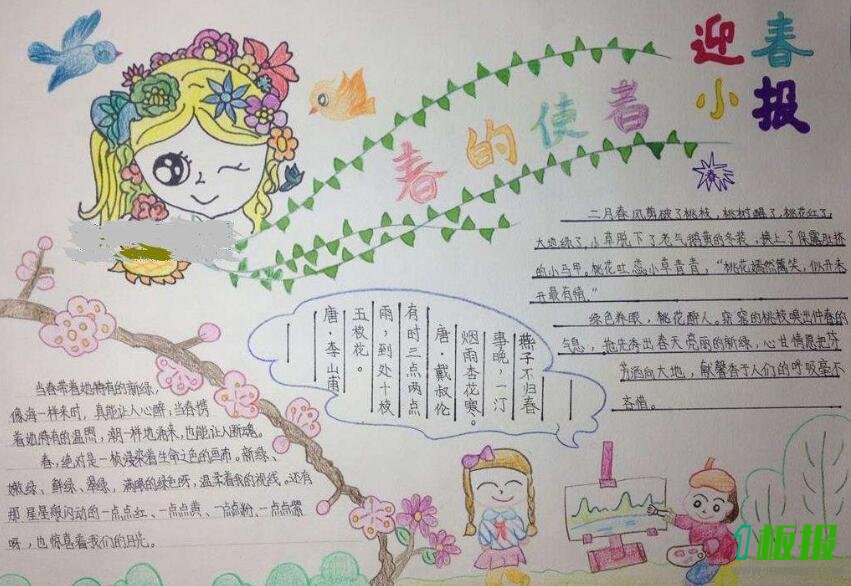 迎春
小报
春的使者
春
二月春风剪破了桃枝，桃树醒了，桃花红了，
大地绿了，小草脱下了老气鹅黄的冬装，换上了
的小马甲。桃花吐蕊，小草青青，“桃花嫣然篱笑，似开未
开最有情。”
绿色养眼，桃花醉人。窈窕的桃枝唤出仲春的
气息，抢先秀出春天亮丽的新绿，心甘情愿把芬
芳洒向大地，献馨香于人们的呼吸毫不
吝惜。
燕子不归春
事晚，一汀
烟雨杏花寒。
唐·戴叔伦
有时三点两点
雨，到处十枝
五枝花。
唐·李山甫
当春带着她特有的新绿，
像海一样来时，真能让人心醉；当春携
着她特有的温煦，潮一样地涌来，也能让人断魂。
春，绝对是一板浸染着生命之色的画布。新绿、
嫩绿、鲜绿、翠绿，满眼的绿色呀，温柔着我的视线。还有
那星星般闪动的一点点红、一点点黄、一点点粉、一点点紫
呀，也惊喜着我们的目光。
板报